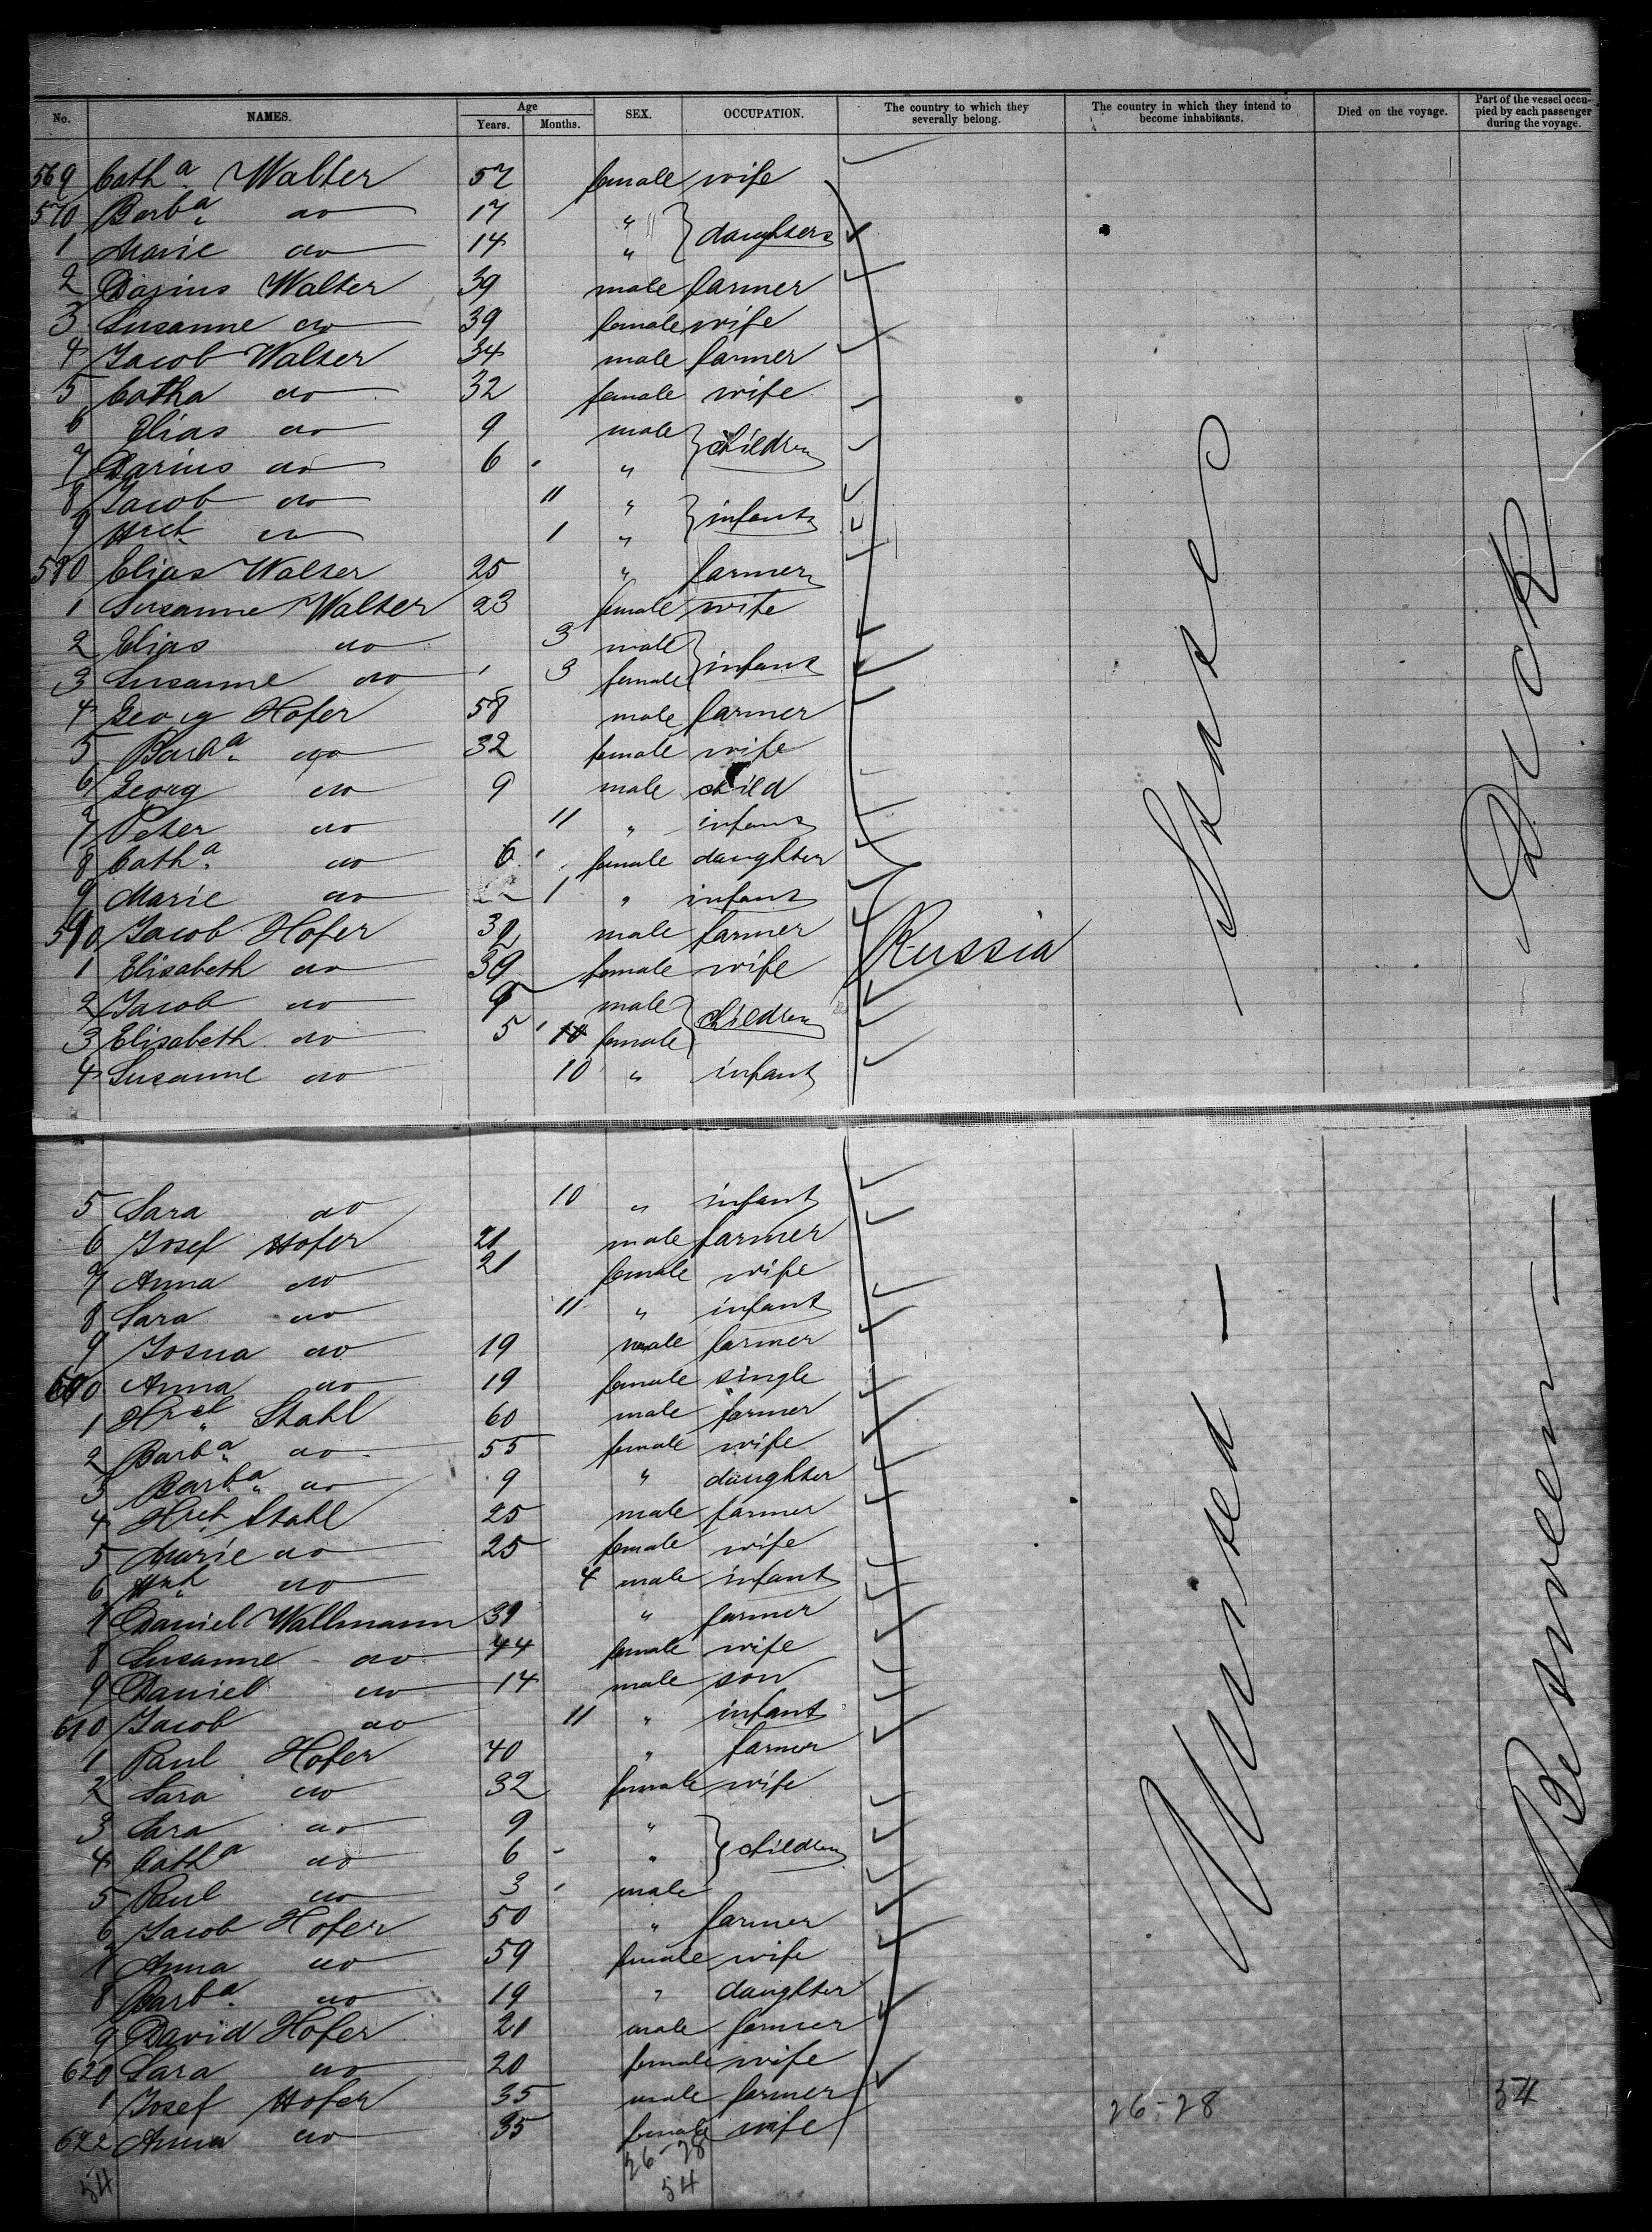 No. NAMES. Age Years. Months. SEX. OCCUPATION. The country to which they severally belong. The country in which they intend to become inhabitants. Died on the voyage. Part of the vessel occupied by each passenger during the voyage.
569 Cath.a Walter 57 female wife
570 Barb.a do 17 " daughters
1 Marie do 14 "
2 Darius Walter 39 male farmer
3 Susanne do 39 female wife
4 Jacob Walter 34 male farmer
5 Catha do 32 female wife
6 Elias do 9 male children
7 Darius do 6 "
8 Jacob do 11 " infants
9 Hrch. do 1 "
580 Elias Walter 25 " farmer
1 Susanne Walter 23 female wife
2 Elias do 3 male infants
3 Susanne do 3 female
4 Georg Hofer 58 male farmer
5 Barb.a do 32 female wife
6 Georg do 9 male child
7 Peter do 11 " infant
8 Cath.a do 6 female daughter
9 Marie do 1 " infant
590 Jacob Hofer male farmer
1 Elisabeth do 39 female wife Russia
2 Jacob do 9 male children
3 Elisabeth do 5 female
4 Susanne do 10 " infant
5 Sara do 10 " infant
6 Josef Hofer 21 male farmer
7 Anna do 21 female wife
8 Sara do 11 " infant
9 Josua do 19 male farmer
600 Anna do 19 female single
1 Hrch. Stahl 60 male farmer
2 Barb.a do 55 female wife
3 Barb.a do 9 " daughter
4 Hrch. Stahl 25 male farmer
5 Marie do 25 female wife
6 Hrch. do 4 male infant
7 Daniel Wallmann 39 " farmer
8 Susanne do 44 female wife
9 Daniel do 14 male son
610 Jacob do 11 " infant
1 Paul Hofer 40 " farmer
2 Sara do 32 female wife
3 Sara do 9 " children
4 Cath.a do 6 "
5 Paul do 3 male
6 Jacob Hofer 50 " farmer
7 Anna do 59 female wife
8 Barb.a do 19 " daughter
9 David Hofer 21 male farmer
620 Sara do 20 female wife
1 Josef Hofer 35 male farmer
622 Anna do 35 female wife
United States
Between Deck
26-28
54
26-28
54
54